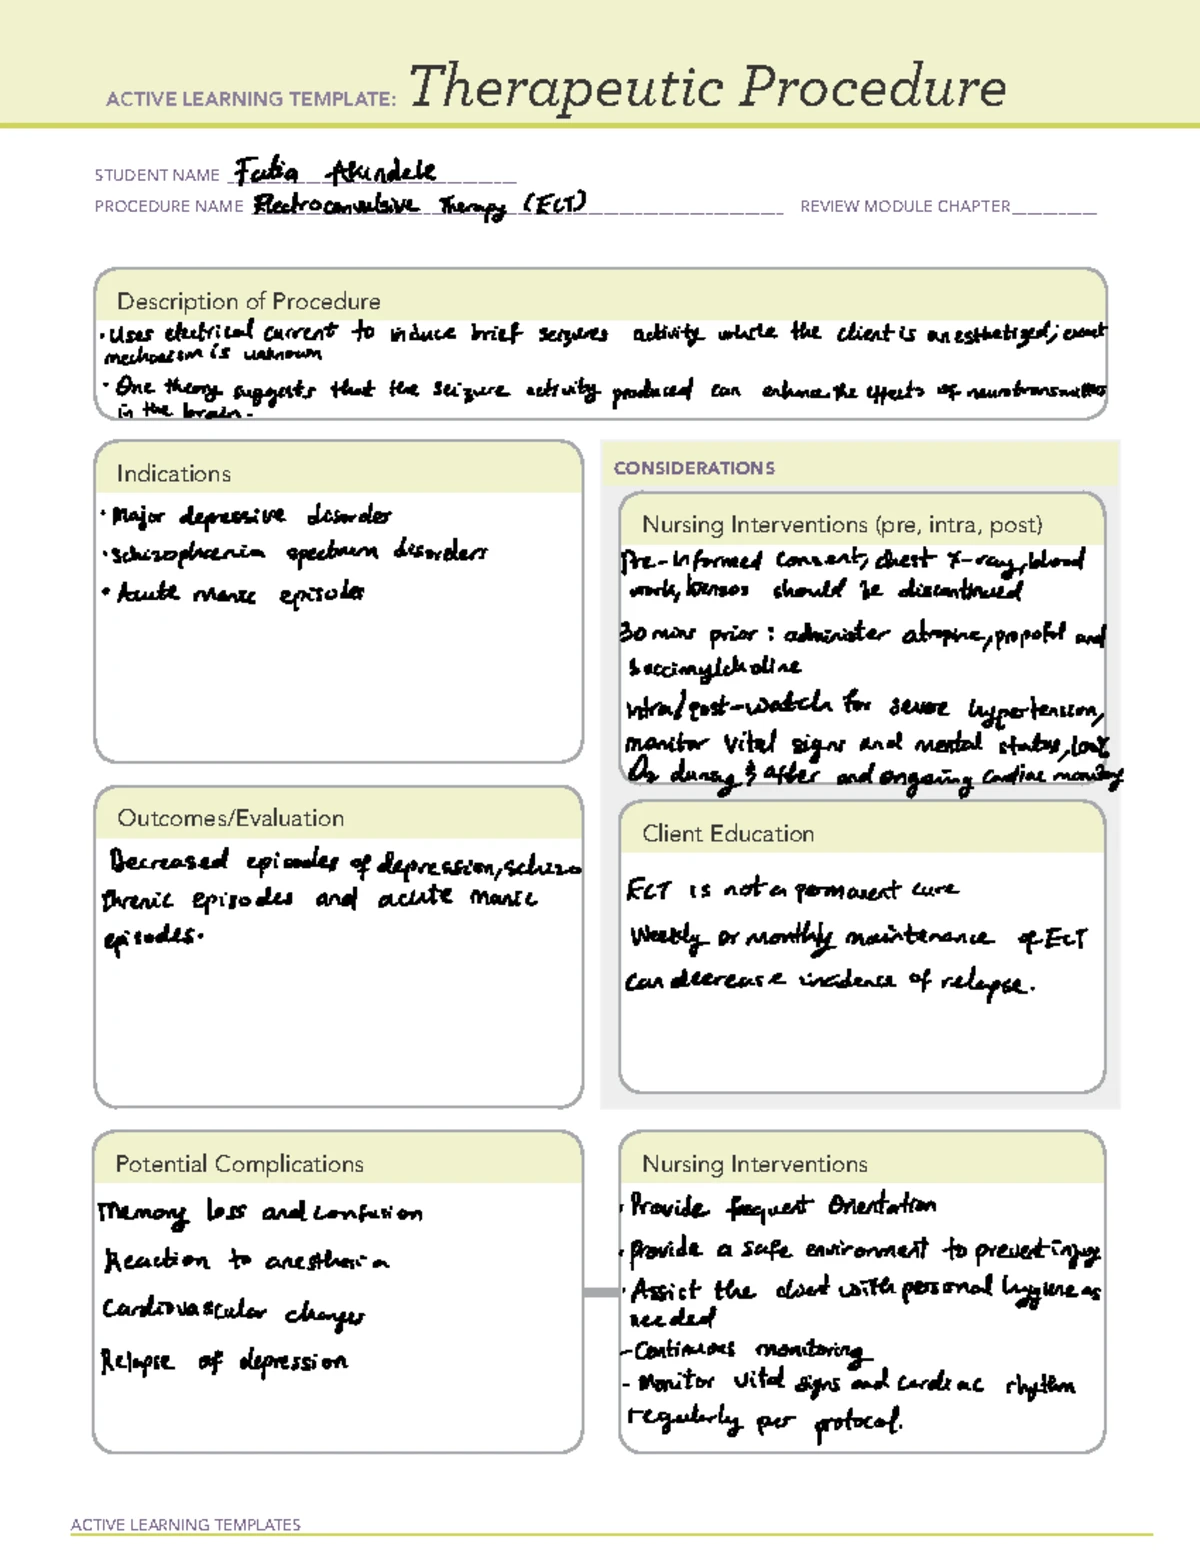 ACTIVE LEARNING TEMPLATE: Therapeutic Procedure
STUDENT NAME Akindele
PROCEDURE NAME Electroconvulsive Therapy (ECT) REVIEW MODULE CHAPTER
Description of Procedure
• Uses electrical current to induce brief seizures activity while the client is anesthetized; exact
mechanism is unknown
• One theory suggests that the seizure activity produced can enhance the effects of neurotransmitters
in the brain.
Indications
• Major depressive disorder
• Schizophrenia spectrum disorders
• Acute manic episodes
CONSIDERATIONS
Nursing Interventions (pre, intra, post)
Pre-Informed Consent, chest X-ray, blood
work, should be discontinued
30 mins prior: administer atropine, propofol and
Succinylcholine
Intra/post-watch for severe hypertension,
monitor vital signs and mental status, 100%
O2 during & after and ongoing cardiac monitoring
Outcomes/Evaluation
Decreased episodes of depression, schizo
phrenic episodes and acute manic
episodes.
Client Education
ECT is not a permanent cure
Weekly or monthly maintenance of ECT
can decrease incidence of relapse.
Potential Complications
Memory loss and confusion
Reaction to anesthesia
Cardiovascular changes
Relapse of depression
Nursing Interventions
• Provide frequent Orientation
• Provide a safe environment to prevent injury
• Assist the client with personal hygiene as
needed
- Continuous monitoring
- Monitor vital signs and cardiac rhythm
regularly per protocol.
ACTIVE LEARNING TEMPLATES